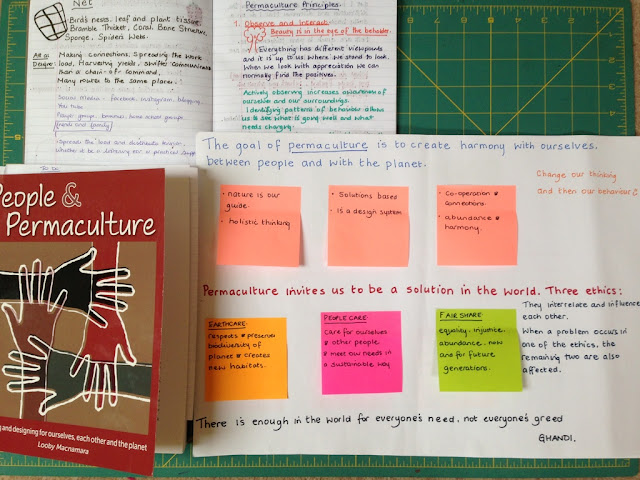 Net
Birds ness, leaf and plant tissue,
Bramble Thicket, Coral, Bone Structure,
Sponge, Spiders Webs.
Making connections, Spreading the work
load, Harvesting yields, swifter communicate
than a chain of command,
Many routes to the same place.
Social Media - facebook, instagram, blogging
You tube
friends and family
Permaculture Principles.
1. Observe and Interact:
Beauty is in the eye of the beholder.
Everything has different viewpoints
and it is up to us where we stand to look.
When we look with appreciation we can
normally find the positives.
Actively observing increases awareness of
ourselves and our surroundings.
Identifying patterns of behaviour allows
us to see what is going well and what
needs changing.
The goal of permaculture is to create harmony with ourselves,
between people and with the planet.
Change our thinking
and then our behaviour?
• nature is our
guide.
• holistic thinking
• Solutions based
• is a design system
• Co-operation &
connections.
• abundance &
harmony.
Permaculture invites us to be a solution in the world. Three ethics:
EARTHCARE:
respects & preserves
biodiversity of
planet & creates
new habitats.
PEOPLE CARE:
care for ourselves
& other people
& meet our needs in
a sustainable way
FAIR SHARE
equality, injustice,
abundance, now
and for future
generations.
They interrelate and influence
each other.
When a problem occurs in
one of the ethics, the
remaining two are also
affected.
There is enough in the world for everyone's need, not everyone's greed
GHANDI.
People &
Permaculture
ng and designing for ourselves, each other and the planet
Looby Macnamara